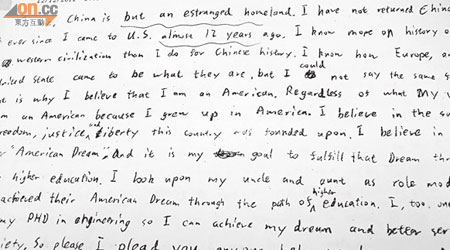 on.cc
東方互動
China is but an estranged homeland. I have not returned China
ever since I came to U.S. almost 12 years ago. I know more on history o
western civilization than I do for Chinese history. I know how Europe, an
United State came to be what they are, but I could not say the same f
is why I believe that I am an American. Regardless of what My v
am an American because I grew up in America. I believe in the
freedom, justice and liberty this country was founded upon. I believe in
"American Dream", And it is my goal to fulfill that Dream thr
higher education. I look upon my uncle and aunt as role mod
achieved their American Dream through the path of higher education. I, too,
my PHD in engineering so I can achieve my dream and better ser
So please I plead you